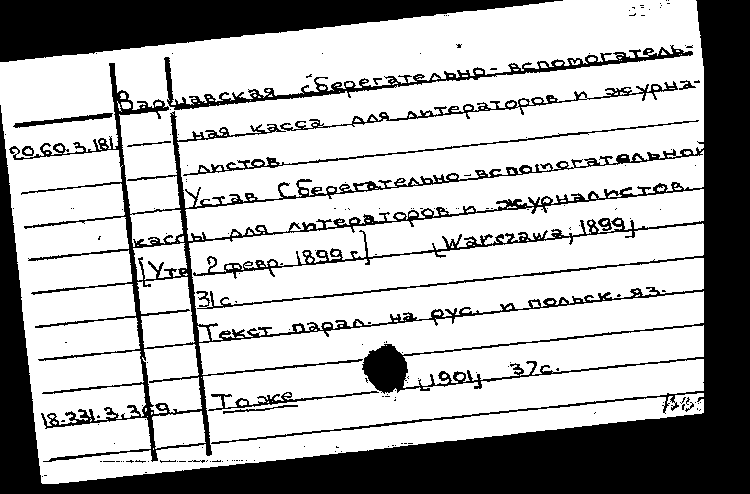 Варшавская сберегательно-вспомогатель-
ная касса для литераторов и журна-
20.60.3.181.
листов.
Устав Сберегательно-вспомогательной
кассы для литераторов и журналистов.
[Утв. 2 февр. 1899 г.] [Warszawa, 1899].
31с.
Текст парал. на рус. и польск. яз.
18.231.3.369. То же [1901]. 37с.